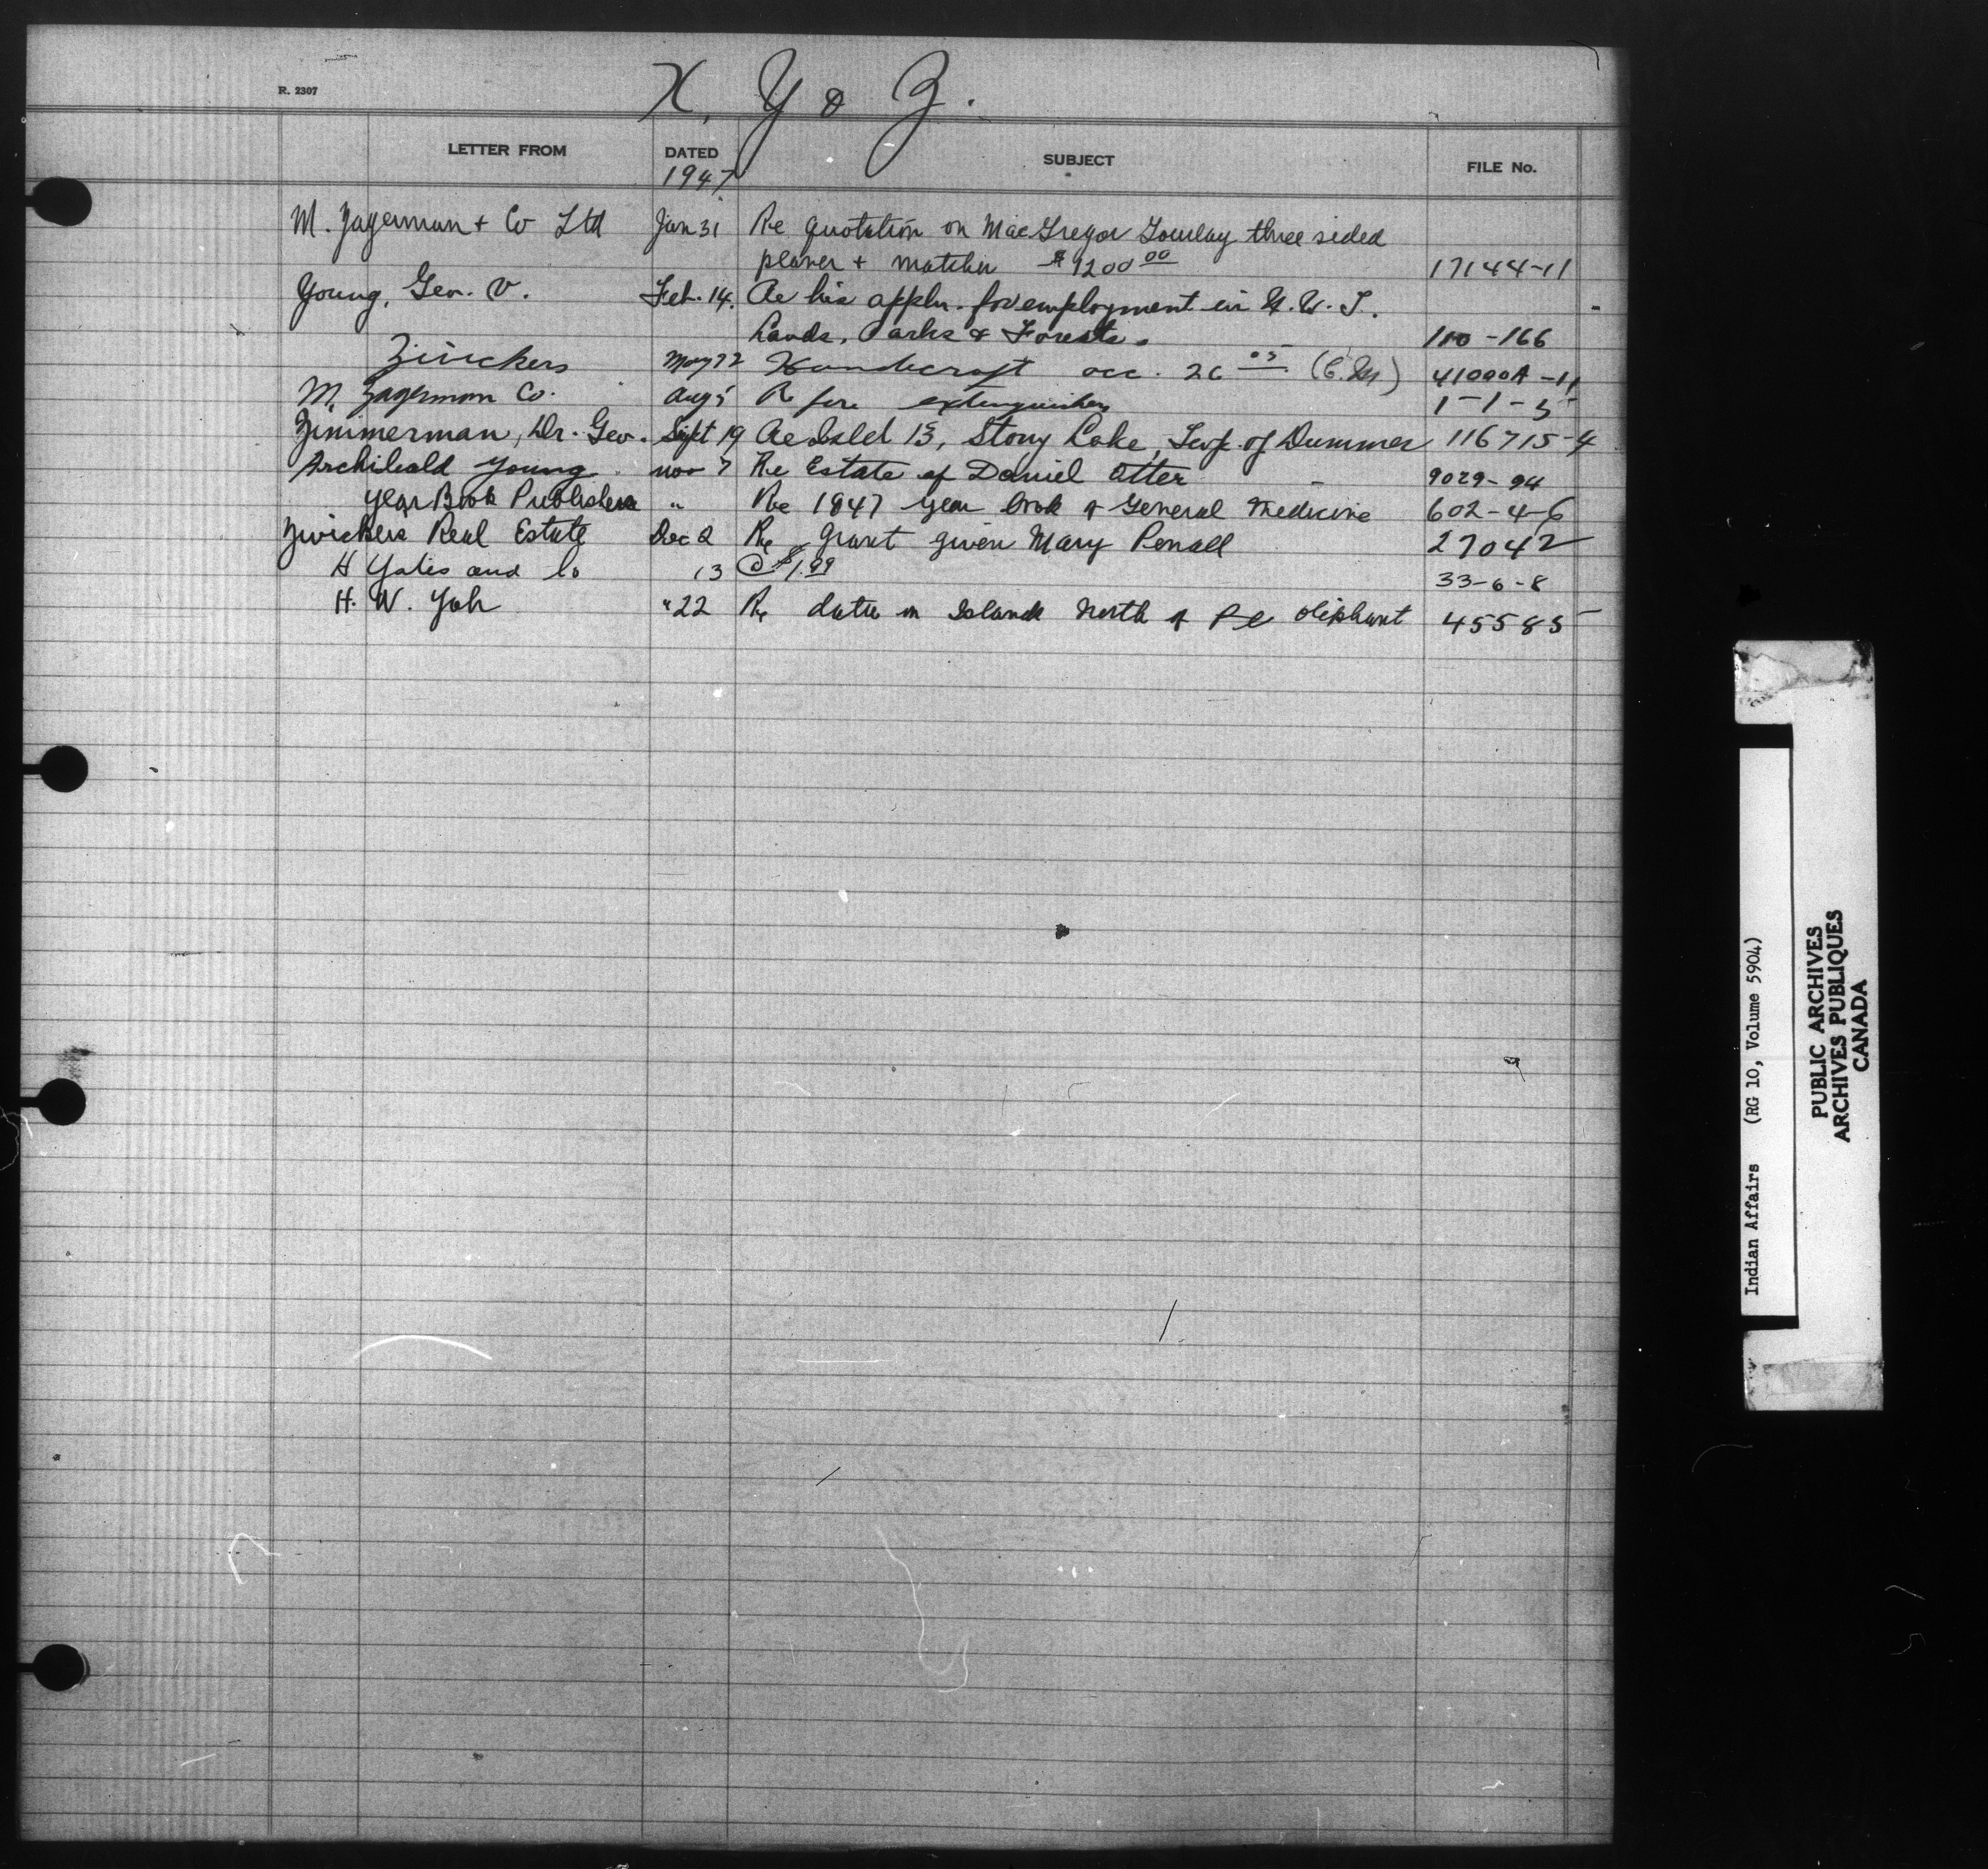 R. 2307
X, Y & Z.
LETTER FROM DATED SUBJECT FILE No.
1947
M. Zagerman + Co Ltd Jan 31 Re quotation on MacGregor Gourlay three sided
planer + matcher $1200 00 17144-11
Young, Geo. V. Feb. 14. Re his appln. for employment in N.W.T.
Lands, Parks & Forests. 110-166
Zwickers May 22 Handicraft acc. 26 05 41000A-11
M. Zagerman Co. Aug 5 Re fire extinguishers 1-1-5
Zimmerman, Dr. Geo. Sept 19 Re Isld 13, Stony Lake, Twp. of Dummer 116715-4
Archibald Young nov 7 Re Estate of Daniel Otter 9029-94
Year Book Publishers " Re 1847 year book of General Medicine 602-4-6
Zwickers Real Estate Dec 2 Re grant given Mary Penall 27042
H Yates and Co 13 @ $1.99 33-6-8
H. W. Yah " 22 Re duties on Islands North of Pe Oliphant 45585
Indian Affairs (RG 10, Volume 5904)
PUBLIC ARCHIVES
ARCHIVES PUBLIQUES
CANADA